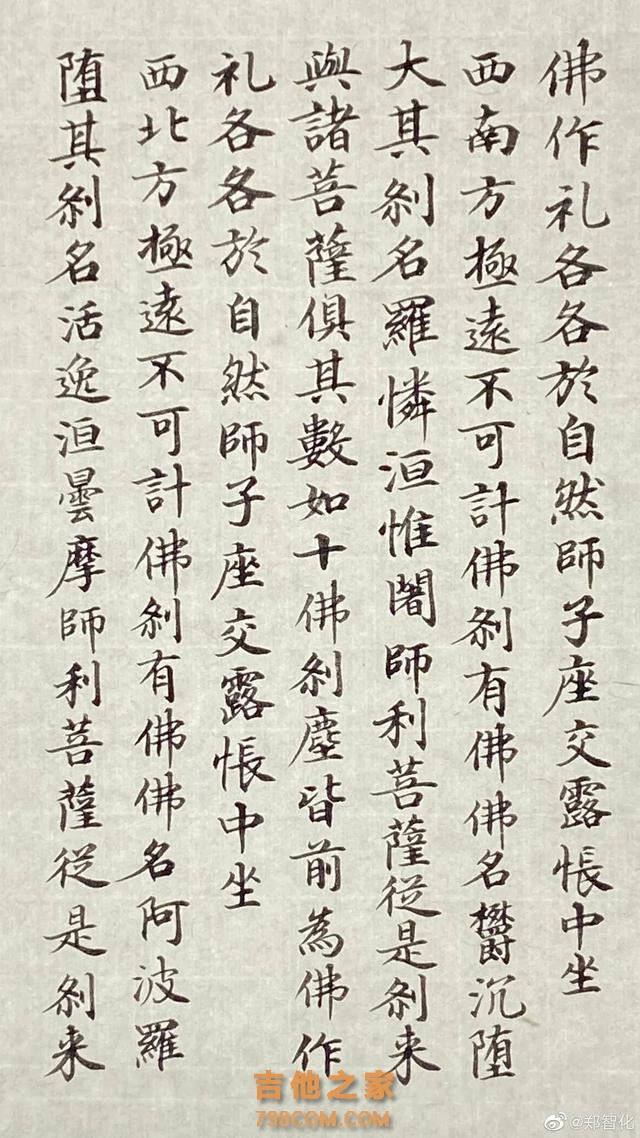 佛作礼各各於自然師子座交露帳中坐
西南方極遠不可計佛刹有佛佛名欝沉堕
大其刹名羅憐洹惟闍師利菩薩従是刹来
與諸菩薩俱其數如十佛刹塵皆前為佛作
礼各各於自然師子座交露帳中坐
西北方極遠不可計佛刹有佛佛名阿波羅
堕其刹名活逸洹曇摩師利菩薩従是刹来
吉他之家
798COM.COM
@郑智化